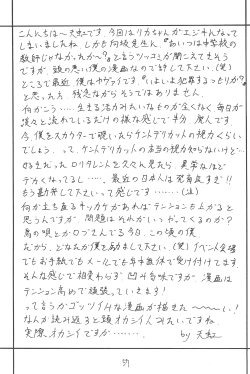 こんにちは〜天虹です。今回はリカちゃんがエジキんなって
しまいましたね。しかも阿坂先生ん、『おいつは中学校の
教師じゃなかったか〜』というツッコミが聞こえてきそう
ですが、頭の悪い僕の漫画なので許して下さい。(笑)
ところで最近、僕はヤヴァイです。『いよいよ犯罪するっきりか?』
と思った方、残念ながらそうではありません。
何かこう……生きる活力みたいなものが全くなく毎日が
淡々と流れているだけの様な感じで半分廃人です。
今、僕をスカウターで覗いたらケントデリカットの視力くらい
でしょう。って、ケントデリカットの本当の視力知らないけど…
好きだった ロリタレントを久々ん見たら、異常なほど
デカくなってるし……、最近の日本人は発育良すぎ!!
もう勘弁して下さいって感じです……(泣)
何か立ち直るキッカケがあればテンションも上がると
思うんですが、問題はそれがいつやってくるのか?
鳥の唄とかロブさんでる今日この頃の僕
だから、どなたか僕を励まして下さい。(笑)イベント会場
でもお手紙でもメールでも年中無休で受け付けてます
そんな感じで相変わらず凹み気味ですが、漫画は
テンション高めで頑張っていきます!
って言うかゴッツイ
なんか読み返すと頭オカシイ人みたいですね
実際オカシイですが……… by 天虹
39